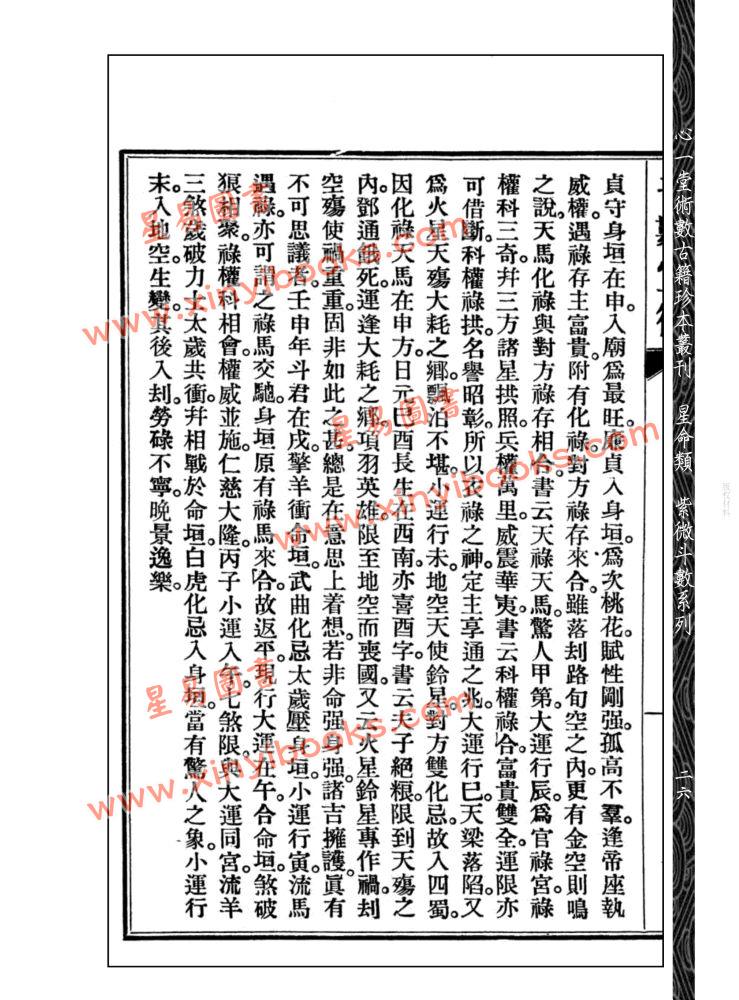 心一堂術數古籍珍本叢刊 星命類 紫微斗數系列
二六
貞守身垣在申入廟爲最旺廉貞入身垣爲次桃花賦性剛强孤高不羣逢帝座執
威權遇祿存主富貴附有化祿對方祿存來合雖落刦路旬空之內更有金空則鳴
之說天馬化祿與對方祿存相合書云天祿天馬驚人甲第大運行辰爲官祿宮祿
權科三奇幷三方諸星拱照兵權萬里威震華夷書云科權祿合富貴雙全運限亦
可借斷科權祿拱名譽昭彰所以衣祿之神定主享通之兆大運行巳天梁落陷又
爲火星天殤大耗之鄉飄泊不堪小運行未地空天使鈴星對方雙化忌故入四蜀
因化祿天馬在申方日元巳酉長生在西南亦喜酉字書云天子絕糧限到天殤之
內鄧通餓死運逢大耗之鄉項羽英雄限至地空而喪國又云火星鈴星專作禍刦
空殤使禍重重固非如此之甚總是在意思上着想若非命强身强諸吉擁護眞有
不可思議者壬申年斗君在戌擎羊衝命垣武曲化忌太歲壓身垣小運行寅流馬
遇祿亦可謂之祿馬交馳身垣原有祿馬來合故返平現行大運在午合命垣煞破
狼相聚祿權科相會權威並施仁慈大隆丙子小運入午七煞限與大運同宮流羊
三煞歲破力士太歲共衝幷相戰於命垣白虎化忌入身垣當有驚人之象小運行
未入地空生變其後入刦勞碌不寧晚景逸樂
星易圖書
www.xinyibooks.com
星易圖書
www.xinyibooks.com
星易圖書
www.xinyibooks.com
版权材料